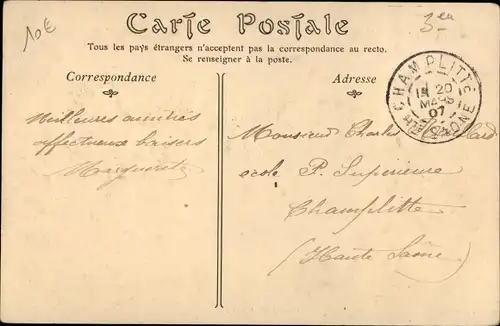 10€
3 —
Carte Postale
Tous les pays étrangers n'acceptent pas la correspondance au recto.
Se renseigner à la poste.
Correspondance
Adresse
CHAMPLITTE
20
MARS
07
HTE SAONE
Meilleures amitiés
affectueux baisers
Marguerite
Monsieur Charles
école P. Supérieure
Champlitte
(Haute Saône)